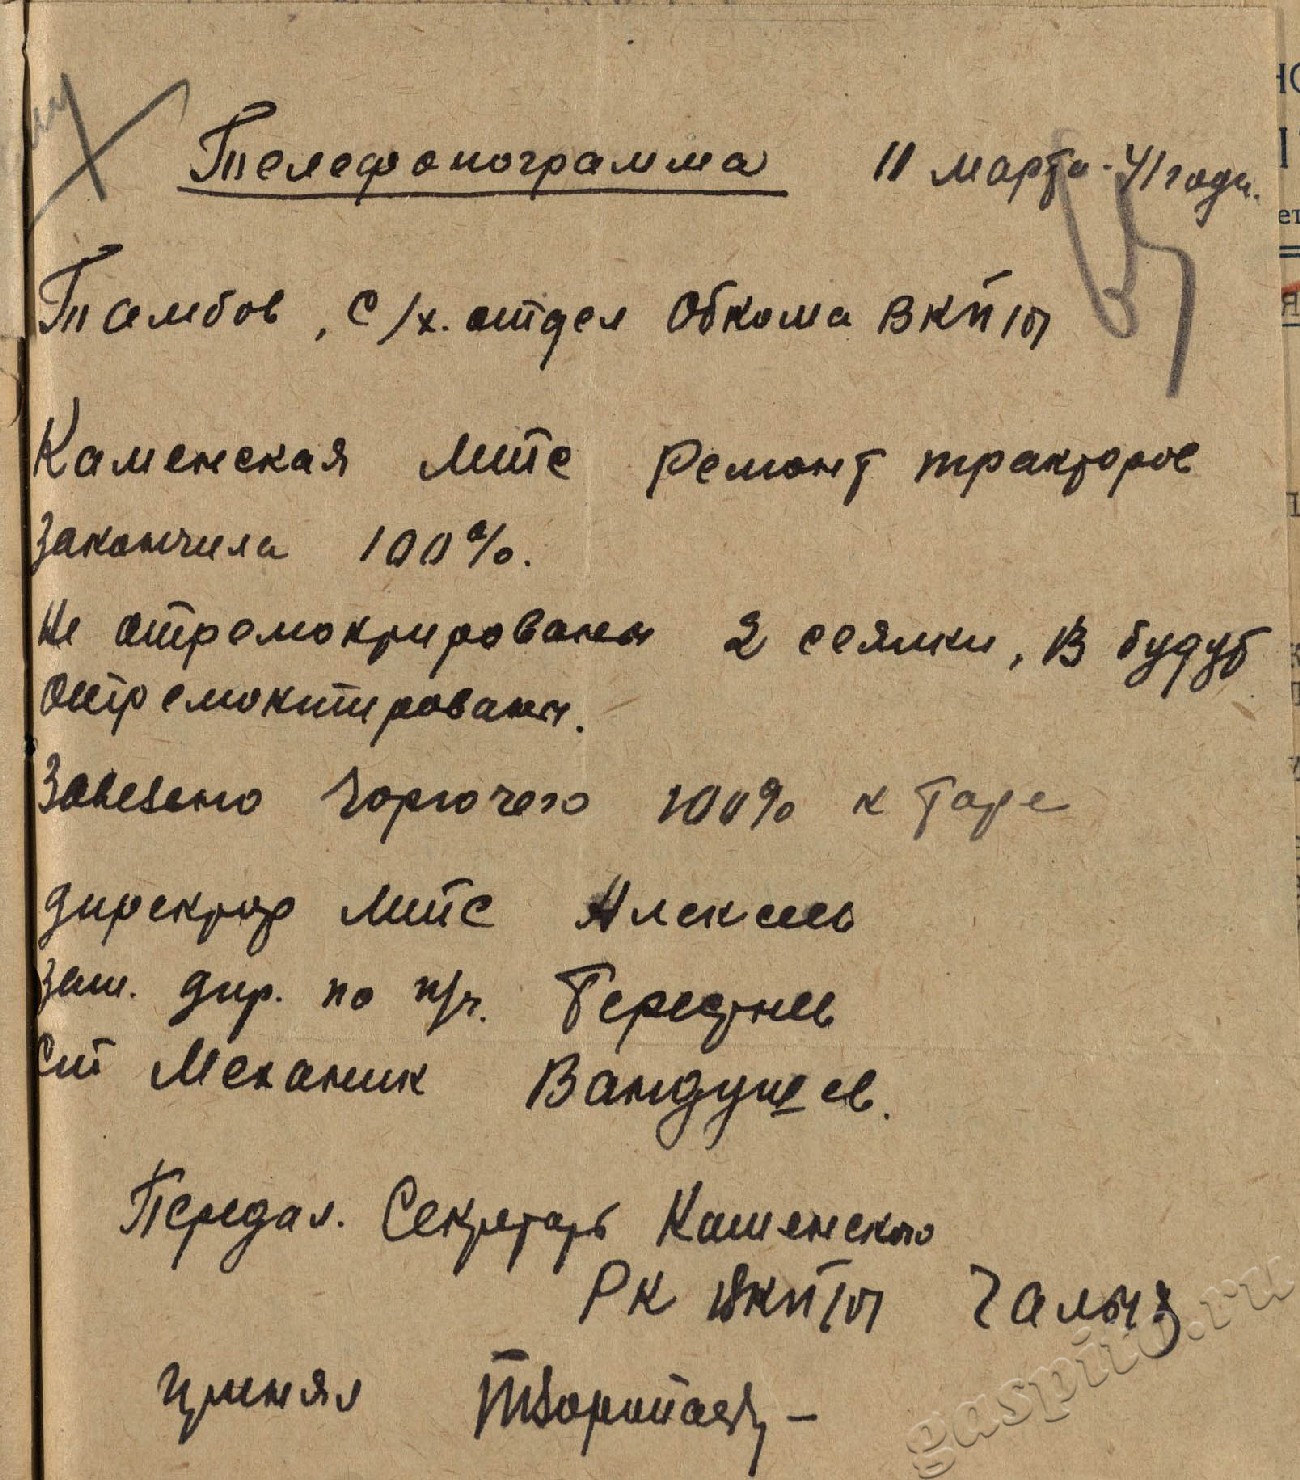 Телефонограмма 11 марта-41 года.
Тамбов, с/х. отдел Обкома ВКП/б/
Каменская МТС ремонт тракторов
закончила 100%.
Не отремонтированы 2 сеялки, будут
отремонтированы.
Завезено горючего 100% к таре
Директор МТС Алексеев
Зам. дир. по п/ч.
Ст Механик Вандушев.
Передал. Секретарь Каменского
РК ВКП/б/
принял
gaspito.ru